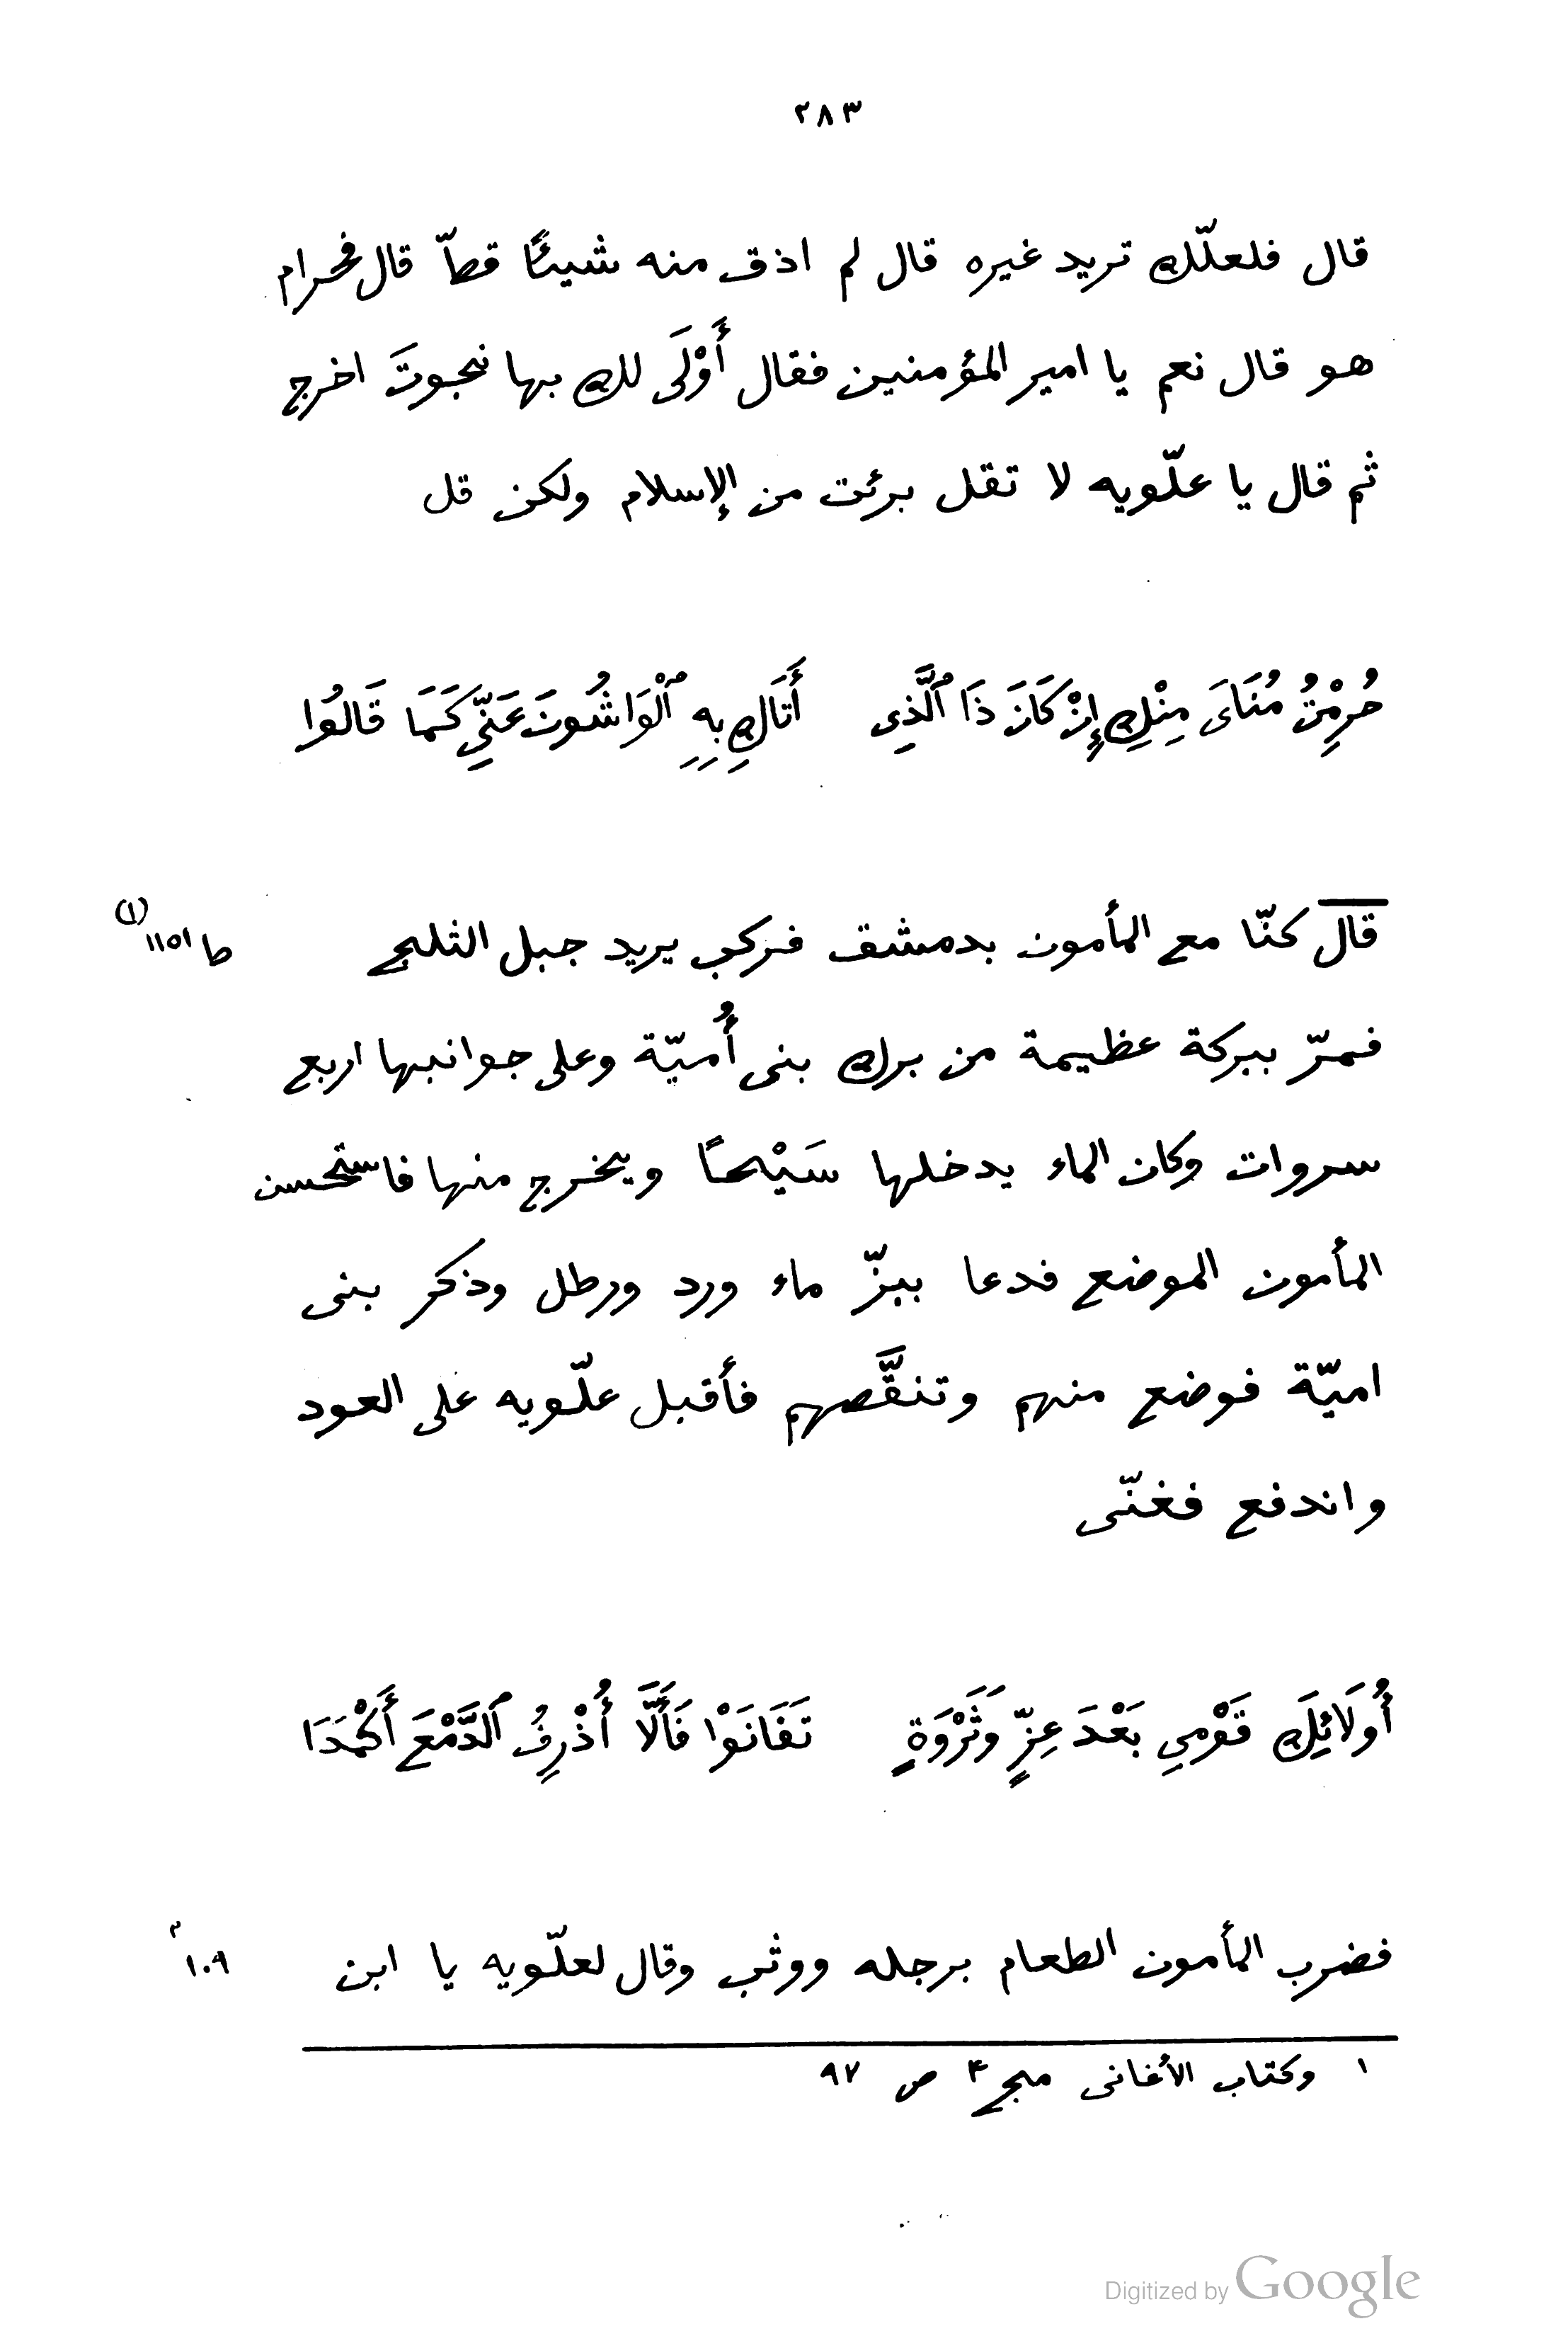 ٢٨٣
قال فلعلّك تريد غيره قال لم اذق منه شيئًا قطّ قال فحرام
هو قال نعم يا امير المؤمنين فقال أَوْلَى لك بها نجوتَ اخرج
ثم قال يا علّويه لا تقل برئت من الإسلام ولكن قل
حُرِمْتُ مُنَاىَ مِنْكِ إِنْ كَانَ ذَا ٱلَّذِى أَتَاكِ بِهِ ٱلْوَاشُونَ عَنِّي كَمَا قَالُوا
قال كنّا مع المأمون بدمشق فركب يريد جبل الثلج
ط ١١٥١ (١)
فمرّ ببركة عظيمة من برك بنى أُميّة وعلى جوانبها اربع
سروات وكان الماء يدخلها سَيْحًا ويخرج منها فاستحسن
المأمون الموضع فدعا ببزّ ماء ورد ورطل وذكر بنى
اميّة فوضع منهم وتنقَّصهم فأقبل علّويه على العود
واندفع فغنّى
أُولَائِكَ قَوْمِي بَعْدَ عِزٍّ وَثَرْوَةٍ تَفَانَوْا فَأَلَّا أُذْرِفُ ٱلدَّمْعَ أَكْمَدَا
فضرب المأمون الطعام برجله ووثب وقال لعلّويه يا ابن
١٠٩
١ وكتاب الأغانى مج ٤ ص ٩٧
Digitized by Google